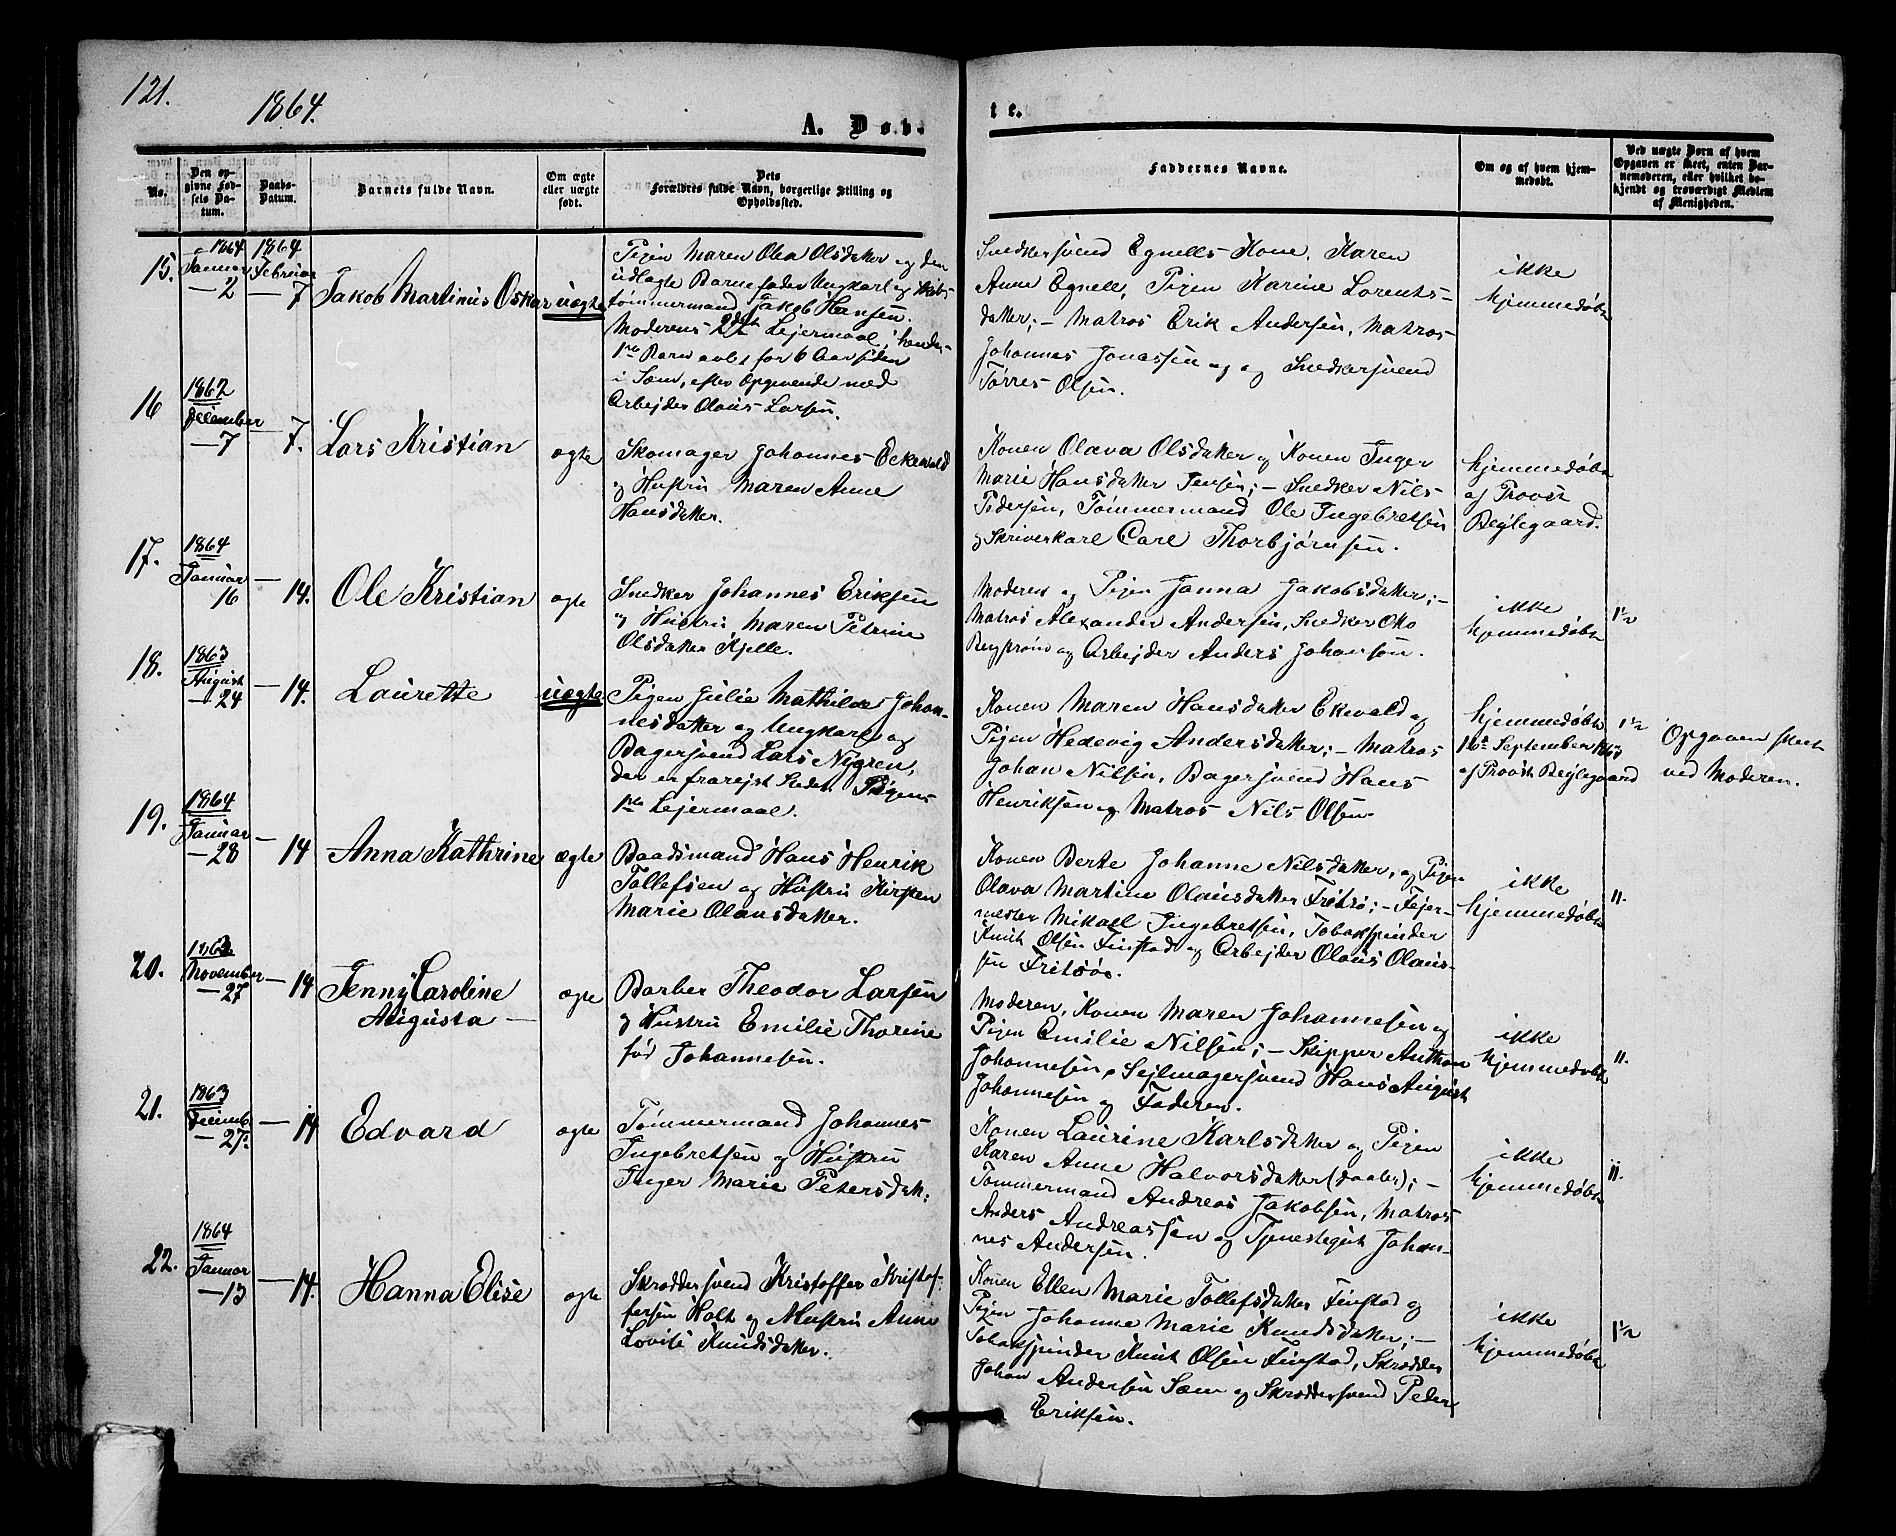 121.
1864.
A. Døb-
te.
No.
Den op-
givne Fød-
sels Da-
tum.
Daabs-
Datum.
Barnets fulde Navn.
Om ægte
eller uægte
født.
Dets
Forældres fulde Navn, borgerlige Stilling og
Opholdssted.
Faddernes Navne.
Om og af hvem hjem-
medøbt.
Ved uægte Børn af hvem
Opgaven er skeet, enten Bar-
nemoderen, eller hvilket be-
kjendt og troværdigt Medlem
af Menigheden.
15.
1864
Januar
— 2
1864
Februar
— 7
Jakob Martinus Oskar
uægte
Pigen Maren Olea Olsdatter og den
udlagte Barnefader Ungkarl og Skibs-
tømmermand Jakob Hansen.
Moderens 2det Lejermaal; hendes
1ste Barn avlet for 6 Aar siden
i Sæm, efter Opgivende med
Arbejder Olaus Larsen.
Snedkersvend Egnells Kone, Karen
Anne Egnell, Pigen Karine Lorents-
datter; – Matros Erik Andersen, Matros
Johannes Jonassen og Snedkersvend
Torres Olsen.
ikke
hjemmedøbt
16
1862
December
— 7
— 7.
Lars Kristian
ægte
Skomager Johannes Eckevald
og Hustru Maren Anne
Hansdatter.
Konen Olava Olsdatter og Konen Inger
Marie Hansdatter Jensen; – Snedker Nils
Pedersen, Tømmermand Ole Ingebretsen
og Skriverkarl Carl Thorbjørnsen.
hjemmedøbt
af Provst
Bejlegaard.
17.
1864
Januar
16
— 14.
Ole Kristian
ægte
Snedker Johannes Eriksen
og Hustru Maren Petrine
Olsdatter Kjelle.
Moderen og Pigen Janna Jakobsdatter; –
Matros Alexander Andersen, Snedker Otto
og Arbejder Anders Johansen.
ikke
hjemmedøbt
1½
18.
1863
August
— 24
— 14.
Laurette
uægte
Pigen Julie Mathilde Johan-
nesdatter og Ungkarl og
Bagersvend Lars Nygren,
der er frarejst Stedet. Pigens
1ste Lejermaal.
Konen Maren Hansdatter Ekevald og
Pigen Hedevig Andersdatter; – Matros
Johan Nilsen, Bagersvend Hans
Henriksen og Matros Nils Olsen.
hjemmedøbt
16de September 1863
af Provst Bejlegaard
1½
Opgaven skeet
ved Moderen.
19.
1864
Januar
— 28
— 14
Anna Kathrine
ægte
Baadsmand Hans Henrik
Tollefsen og Hustru Kirsten
Marie Olausdatter.
Konen Berte Johanne Nilsdatter, og Pigen
Olava Martine Olausdatter Fritsø; – Fejer-
mester Mikael Ingebretsen, Tobakspinder
Knut Olsen Finstad og Arbejder Olaus Olaus-
sen Fritsøe.
ikke
hjemmedøbt
11.
20.
1863
November
— 27
— 14
Jenny Caroline
Augusta —
ægte
Barber Theodor Larsen
og Hustru Emilie Thorine
fød Johannesen.
Moderen, Konen Maren Johannesen og
Pigen Emilie Nilsen; – Skipper Anthon
Johannesen, Sejlmagersvend Hans August
Johannesen og Faderen.
ikke
hjemmedøbt
11.
21.
1863
Decemb.
— 27.
— 14
Edvard
ægte
Tømmermand Johannes
Ingebretsen og Hustru
Inger Marie Petersdatt:
Konen Laurine Karlsdatter og Pigen
Karen Anne Halvorsdatter (Daabs); –
Tømmermand Andreas Jakobsen, Matros
Anders Andreassen og Tjenestegut Johan-
nes Andersen.
ikke
hjemmedøbt
11.
22.
1864
Januar
— 13
— 14.
Hanna Elise
ægte
Skræddersvend Kristoffer Kristof-
fersen Holt og Hustru Anne
Lovise Knudsdatter.
Konen Ellen Marie Tollefsdatter Finstad og
Pigen Johanne Marie Knudsdatter; –
Tobakspinder Knut Olsen Finstad, Skrædder
Johan Andersen Sæm og Skræddersvend Peder
Eriksen.
ikke
hjemmedøbt
1½